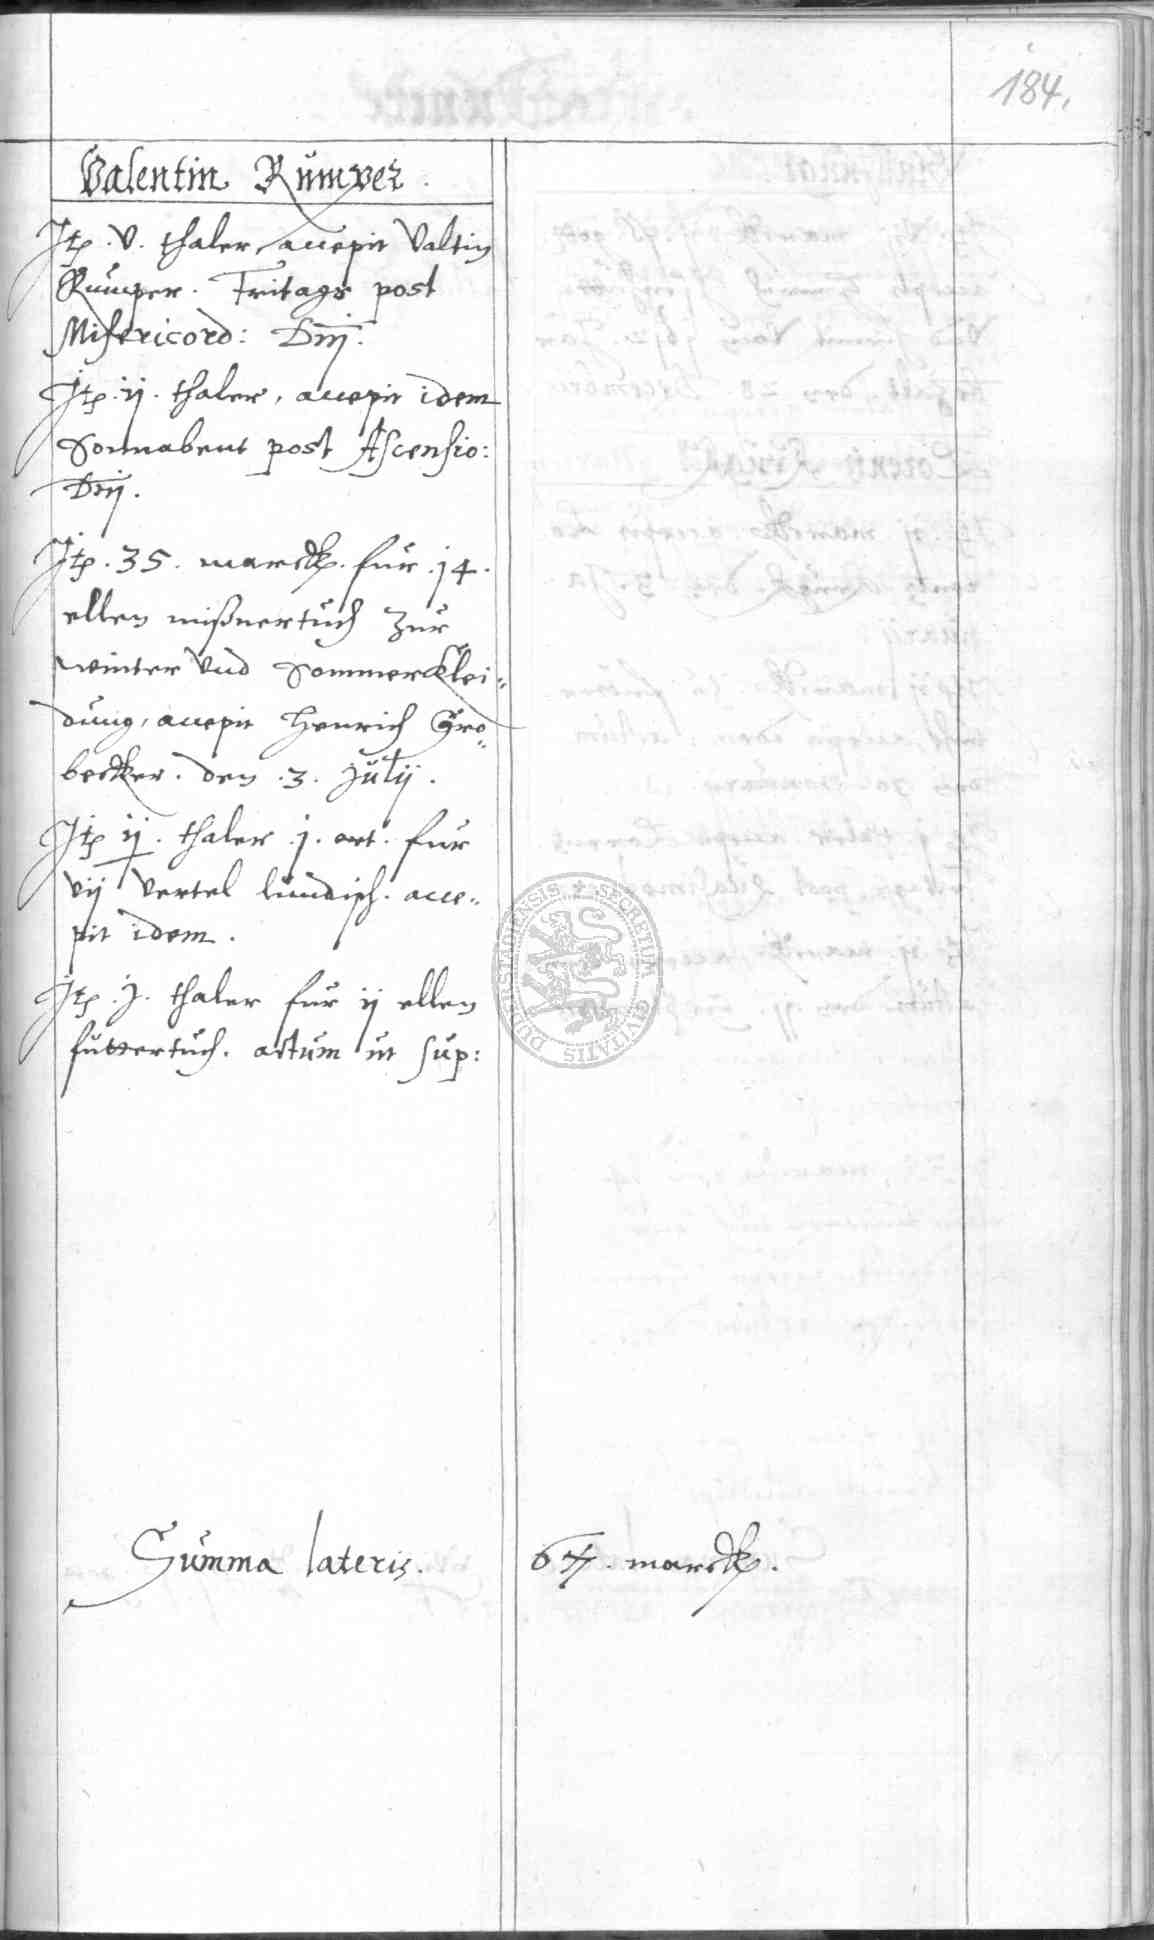 184.
Valentin Rumper.
Itp. v. thaler, accepit Valtin
Rumper. Fritags post
Misericord: Dnj.
Itp. ij. thaler, accepit idem
Sonnabent post Ascensio:
Dnj.
Itp. 35. marck. fur .14.
ellen mißnertuch zur
winter vnd Sommerklei=
dung, accepit Henrich Gro=
becker. den .3. Julij.
Itp ij. thaler .j. ort. fur
vij vertel lundisch. acce=
pit idem.
Itp. j. thaler fur ij ellen
futtertuch. actum ut sup:
Summa lateris. marck.
SECRETUM CIVITATIS DUDERSTADIENSIS